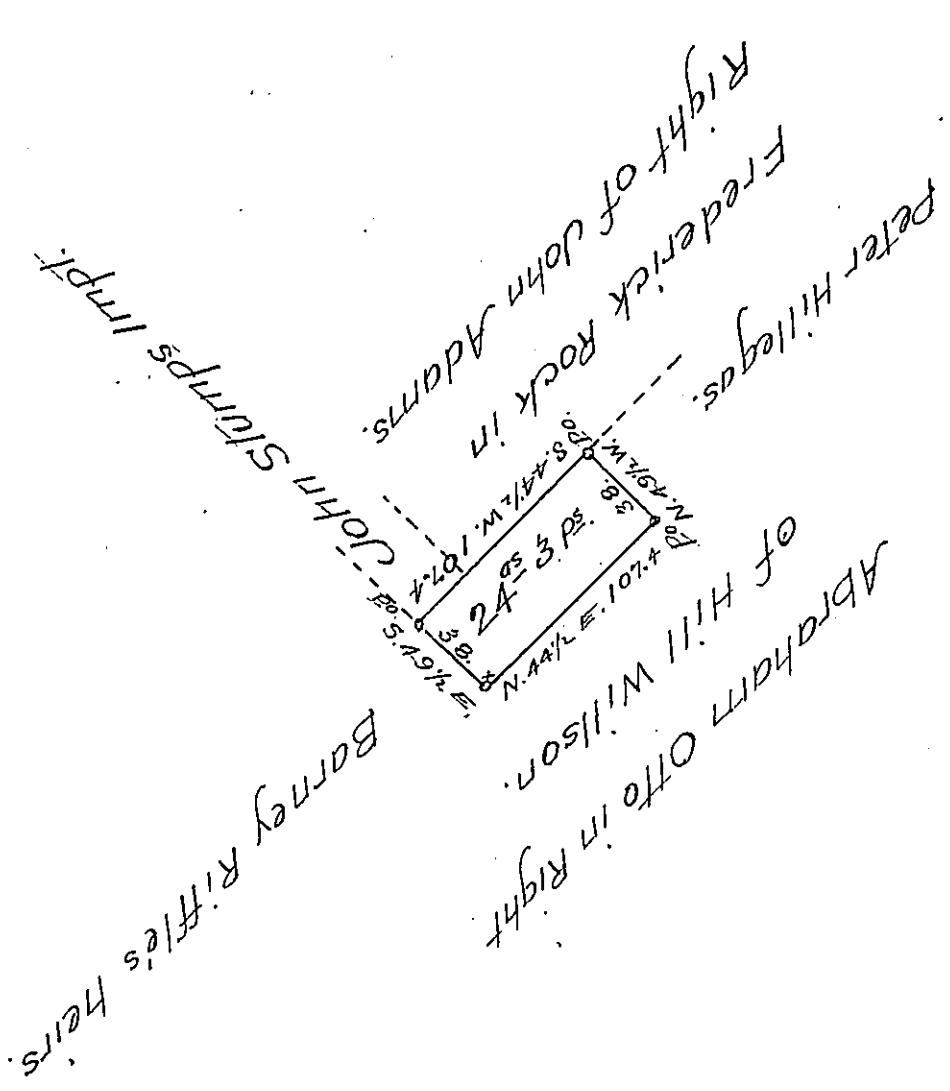 John Stump's Impt.
Frederick Rock in
Right of John Adams.
Peter Hillegas.
Abraham Otto in Right
of Hill Willson.
Barney Riffle's heirs.
S. 44½ W. 107.4
Po.
N. 49½ W.
38.
Po
N. 44½ E. 107.4
S. 49½ E.
38.
Po.
24 as & ps.